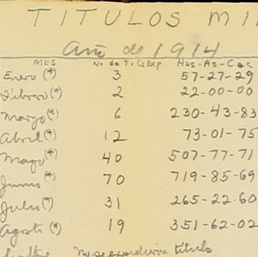 TITULOS MI
Año de 1914
MES No de Tits Exp Has-As-Cas
Enero (*) 3 57-27-29
Febrero (*) 2 22-00-00
Março (*) 6 230-43-83
Abril (*) 12 73-01-75
Mayo (*) 40 507-77-71
Junio (*) 70 719-85-69
Julio (*) 31 265-22-60
Agosto (*) 19 351-62-02
No se expidieron titulos